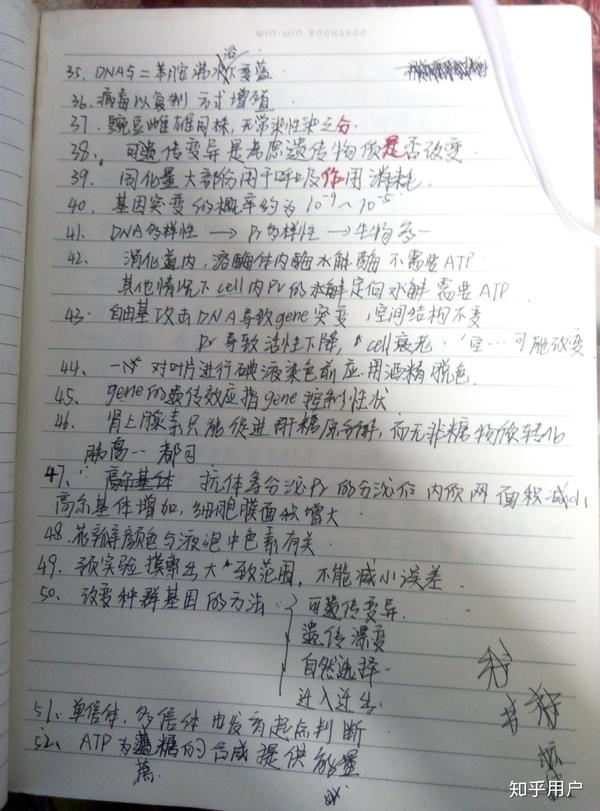 WIN-WIN BOOKSHOW
35. DNA与二苯胺沸水浴变蓝
36. 病毒以复制方式增殖
37. 豌豆雌雄同株，无常染性染之分
38. 可遗传变异是考虑遗传物质是否改变
39. 同化量大部份用于呼吸作用消耗.
40. 基因突变的概率约为 10⁻⁹～10⁻⁵
41. DNA多样性 → Pr多样性 → 生物多一
42. 消化道内，溶酶体内酶水解酶 不需要ATP
其他情况下cell内Pr的水解定向水解需要ATP
43. 自由基攻击DNA导致gene突变，空间结构不变
Pr导致活性下降，cell衰老. 空…可能改变
44. 一 对叶片进行碘液染色前应用酒精脱色.
45. gene的遗传效应指gene控制性状
46. 肾上腺素只能促进肝糖原分解，而无非糖物质转化
胰高… 都可
47. 抗体等分泌Pr的分泌后 内质网面积减小
高尔基体增加，细胞膜面积增大
48. 花瓣颜色与液泡中色素有关
49. 预实验摸索出大致范围，不能减小误差.
50. 改变种群基因的方法：可遗传变异.
遗传漂变
自然选择.
迁入迁出.
51. 单倍体，多倍体由发育起点判断
52. ATP为蔗糖的合成提供能量
知乎用户